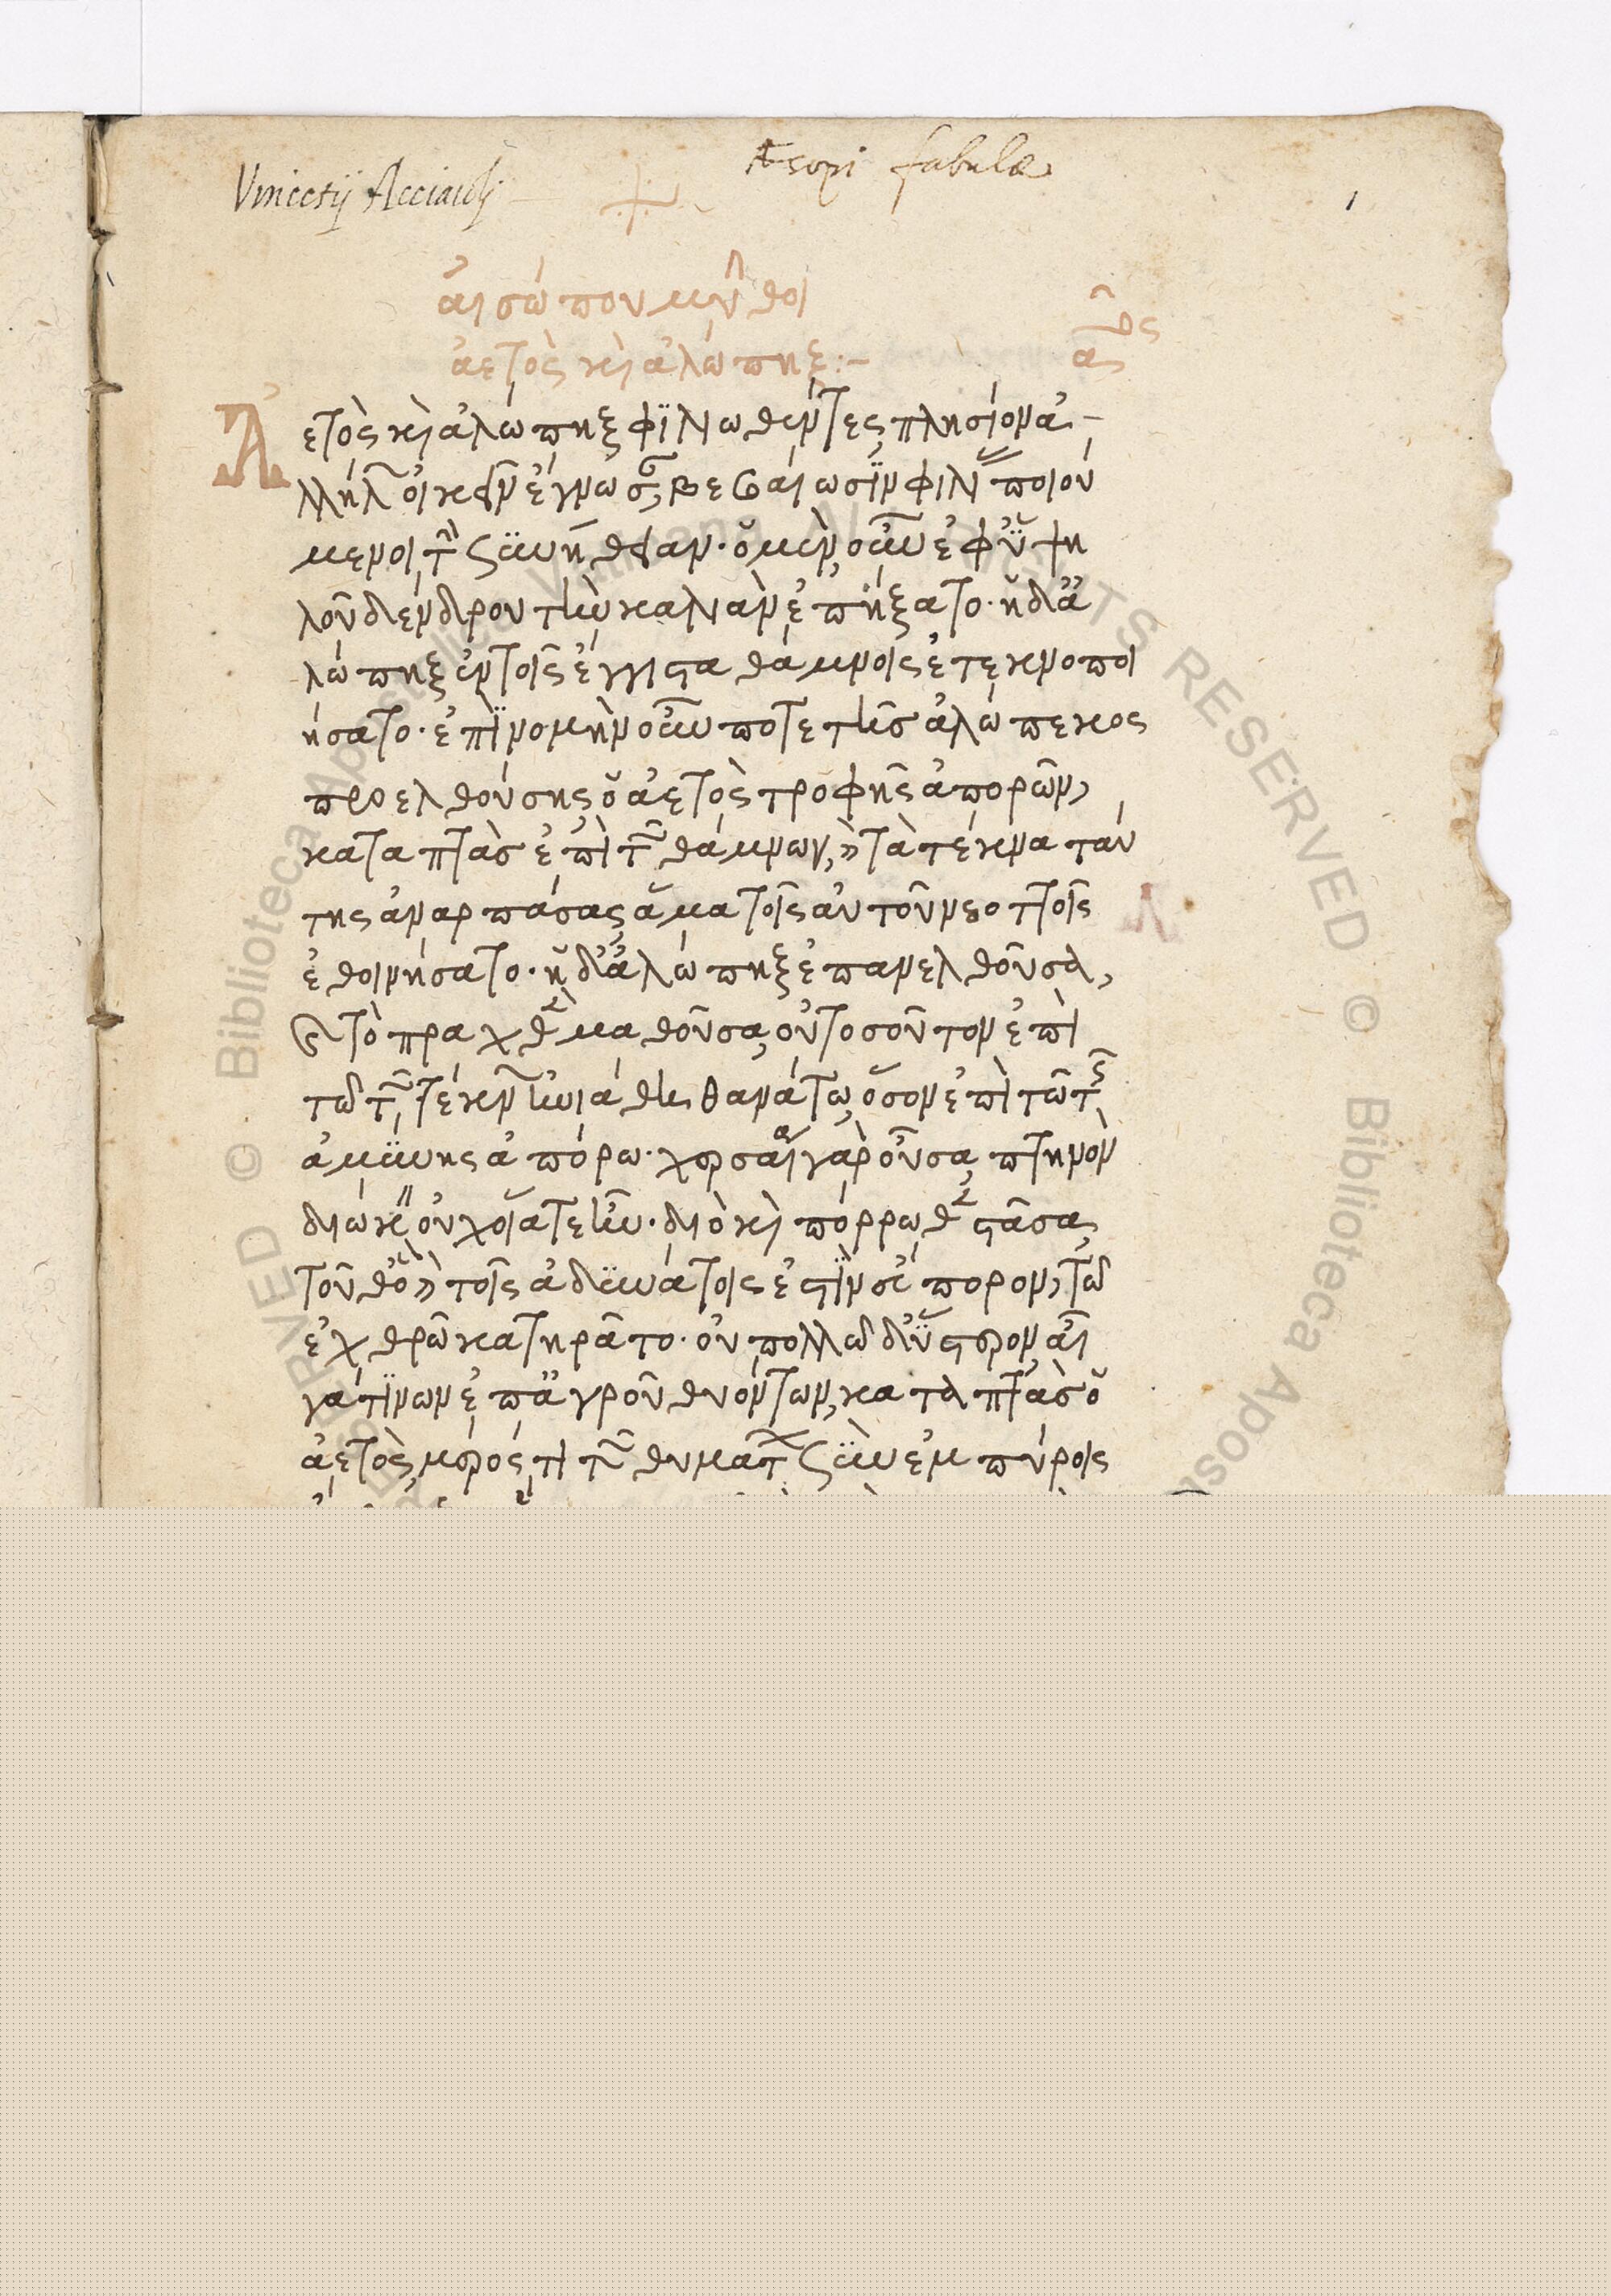 Æsopi fabulæ
Vincetij Acciaioli
1
αἰσώπου μῦθοι
ἀετὸς καὶ ἀλώπηξ:-
Ἀετὸς καὶ ἀλώπηξ φιλιωθέντες, πλησίον ἀ-
λλήλων οἰκεῖν ἔγνωσαν, βεβαίωσιν φιλίας ποιού
μενοι τὴν συνήθειαν. ὁ μὲν οὖν ἐφ' ὑψη
λοῦ δένδρου τὴν καλιὰν ἐπήξατο. ἡ δ' ἀ
λώπηξ ἐν τοῖς ἔγγιστα θάμνοις ἐτεκνοποι
ήσατο. ἐπὶ νομὴν οὖν ποτε τῆς ἀλώπεκος
προελθούσης, ὁ ἀετὸς τροφῆς ἀπορῶν,
καταπτὰς ἐπὶ τῶν θάμνων, καὶ τὰ τέκνα ταύ
της ἀναρπάσας, ἅμα τοῖς αὐτοῦ νεοττοῖς
ἐθοινήσατο. ἡ δ' ἀλώπηξ ἐπανελθοῦσα,
καὶ τὸ πραχθὲν μαθοῦσα, οὐ τοσοῦτον ἐπὶ
τῷ τῶν τέκνων ἠνιάθη θανάτῳ, ὅσον ἐπὶ τῷ τῆς
ἀμύνης ἀπόρῳ. χερσαία γὰρ οὖσα, πτηνὸν
διώκειν οὐχ οἵα τε ἦν. διὸ καὶ πόρρωθεν στᾶσα,
τοῦθ' ὃ καὶ τοῖς ἀδυνάτοις ἐστὶν εὔπορον, τῷ
ἐχθρῷ κατηρᾶτο. οὐ πολλῷ δ' ὕστερον αἶ
γά τινων ἐπ' ἀγροῦ θυόντων, καταπτὰς ὁ
ἀετὸς, μέρός τι τῶν θυμάτων σὺν ἐμπύροις